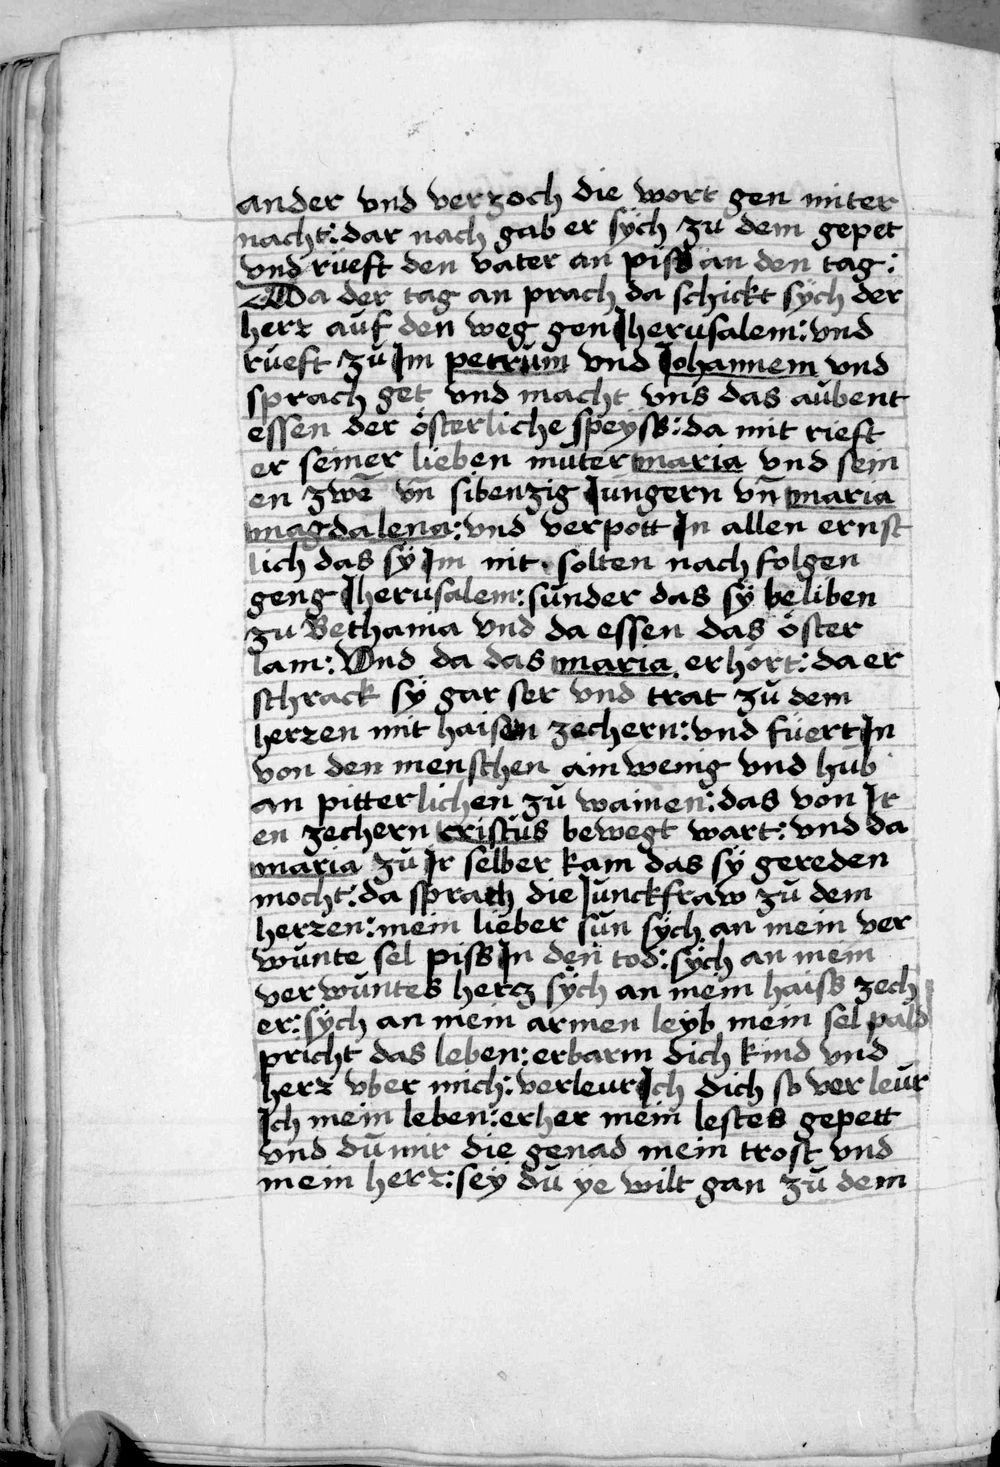 ander vnd verzoch die wort gen miter
nacht: dar nach gab er sÿch zu dem gepet
vnd rüeft den vater an piss an den tag:
Da der tag an prach da schickt sÿch der
herr auf den weg gen Jherusalem: vnd
rueft zu Jm petrum vnd Johannem vnd
sprach get vnd macht vns das aubent
essen der österliche speÿss: da mit rieft
er seiner lieben muter maria vnd sein
en zwē vn̄ sibenzig Jungern vn̄ maria
magdalena: vnd verpott Jn allen ernst
lich das sÿ Jm nit solten nach folgen
geng Jherusalem: sunder das sÿ beliben
zu Bethania vnd da essen das öster
lam: Vnd da das maria erhört: da er
schrack sÿ gar ser vnd trat zu dem
herren mit haisen zechern: vnd füert Jn
von den menschen ain wenig vnd hub
an pitterlichen zu wainen: das von Jr
en zechern cristus bewegt wart: vnd da
maria zu Jr selber kam das sÿ gereden
mocht: da sprach die Junckfraw zu dem
herren: mein lieber sun sÿch an mein ver
wunte sel piss Jn den tod: sÿch an mein
ver wuntes hercz sÿch an mein haiss zech
er: sÿch an mein armen leÿb mein sel pald
pricht das leben: erbarm dich kind vnd
herr vber mich: verleur Jch dich so ver leur
Jch mein leben: erher mein lestes gepett
vnd du mir die genad mein trost vnd
mein herr: seÿ du ÿe wilt gan zu dem